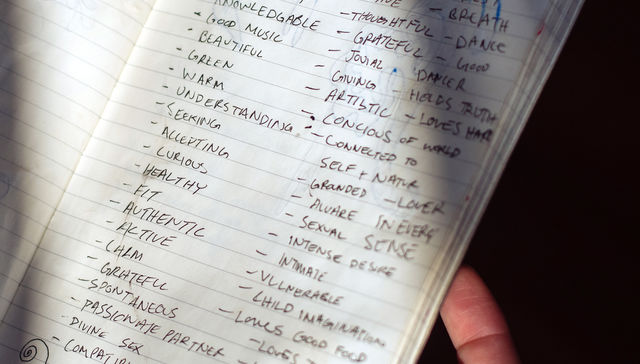 KNOWLEDGABLE
- GOOD MUSIC
- BEAUTIFUL
- GREEN
- WARM
- UNDERSTANDING
- SEEKING
- ACCEPTING
- CURIOUS
- HEALTHY
- FIT
- AUTHENTIC
- ACTIVE
- CALM
- GRATEFUL
- SPONTANEOUS
- PASSIONATE PARTNER
- DIVINE SEX
- THOUGHTFUL
- GRATEFUL
- JOVIAL
- GIVING
- ARTISTIC
- CONCIOUS OF WORLD
- CONNECTED TO
SELF + NATUR
- GRANDED
- AWARE
- SEXUAL
- INTENSE DESIRE
- INTIMATE
- VULNERABLE
- CHILD IMAGINATION
- LOVES GOOD FOOD
- LOVES
- BREATH
- DANCE
- GOOD
DANCER
- HOLDS TRUTH
- LOVES HARD
- LOVER
IN EVERY
SENSE